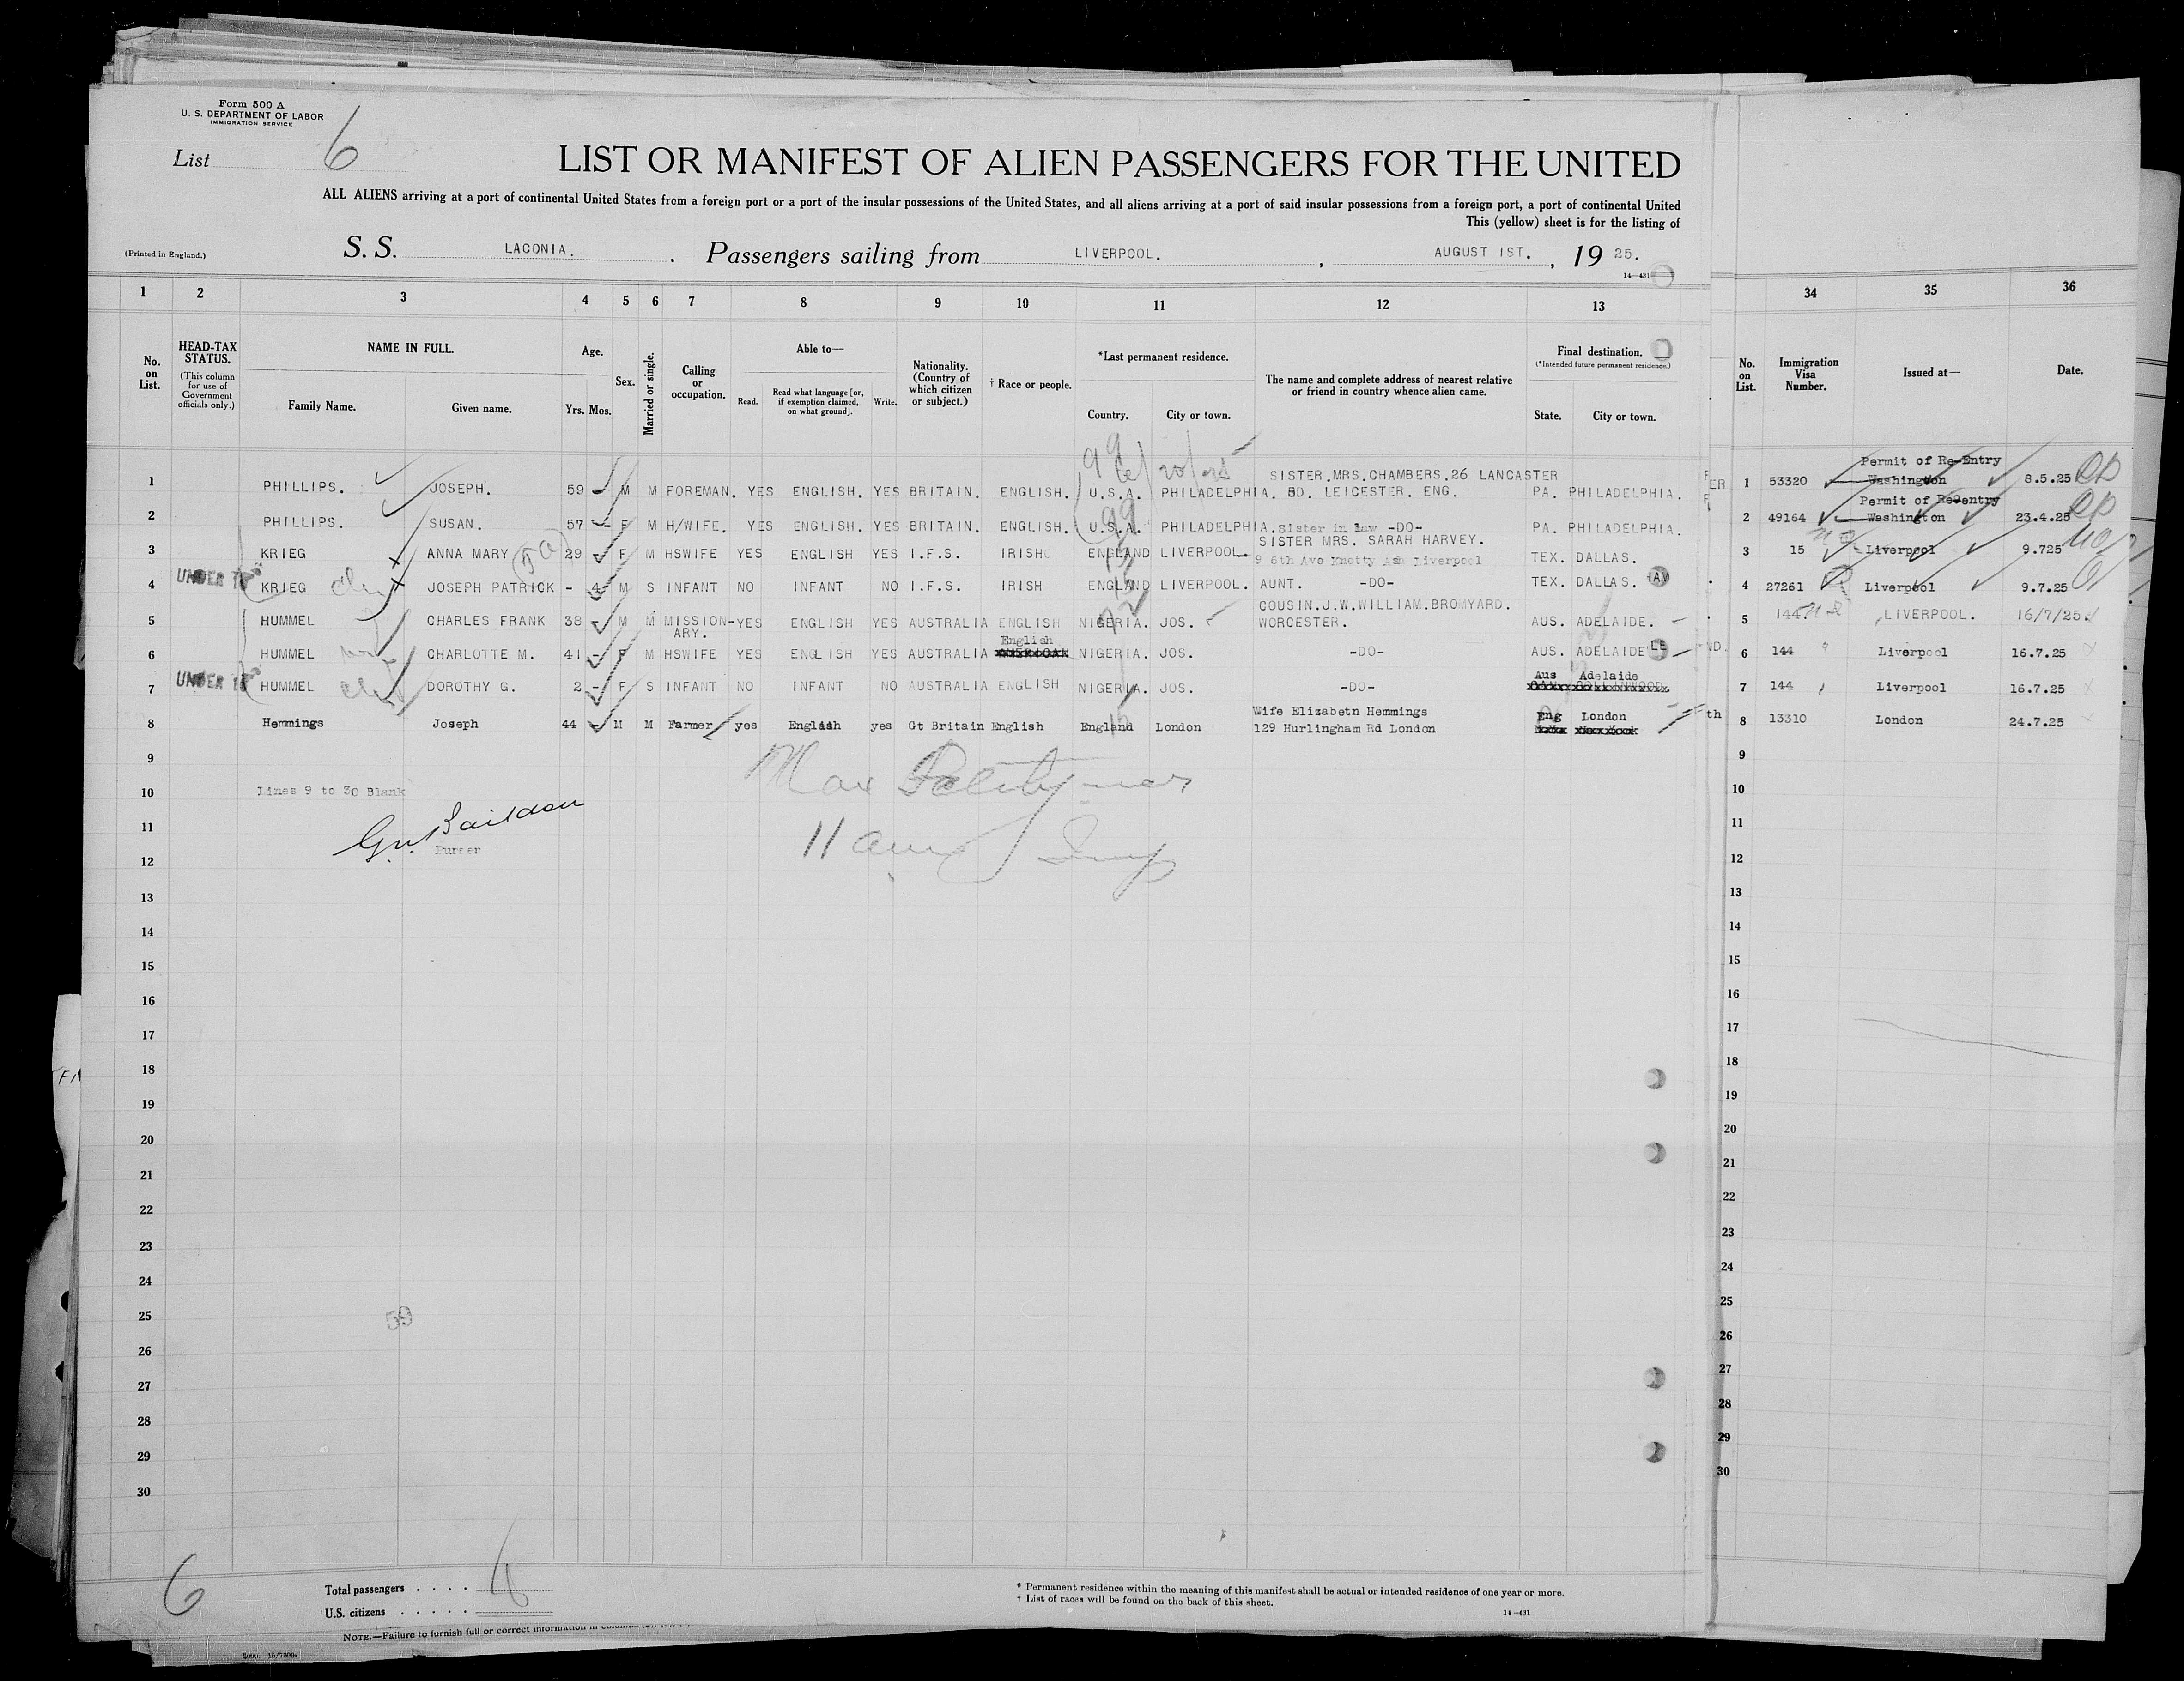 Form 500 A
U. S. DEPARTMENT OF LABOR
IMMIGRATION SERVICE
List 6
LIST OR MANIFEST OF ALIEN PASSENGERS FOR THE UNITED
ALL ALIENS arriving at a port of continental United States from a foreign port or a port of the insular possessions of the United States, and all aliens arriving at a port of said insular possessions from a foreign port, a port of continental United
This (yellow) sheet is for the listing of
(Printed in England.) S. S. LACONIA. Passengers sailing from LIVERPOOL. , AUGUST 1ST. , 19 25.
14-431
1 2 3 4 5 6 7 8 9 10 11 12 13 34 35 36
No. on List. HEAD-TAX STATUS. (This column for use of Government officials only.) NAME IN FULL. Family Name. Given name. Age. Yrs. Mos. Sex. Married or single. Calling or occupation. Able to— Read. Read what language [or, if exemption claimed, on what ground]. Write. Nationality. (Country of which citizen or subject.) † Race or people. *Last permanent residence. Country. City or town. The name and complete address of nearest relative or friend in country whence alien came. Final destination. (*Intended future permanent residence.) State. City or town. No. on List. Immigration Visa Number. Issued at— Date.
99
SISTER.MRS.CHAMBERS.26 LANCASTER Permit of Re-Entry
1 PHILLIPS. JOSEPH. 59 M M FOREMAN. YES ENGLISH. YES BRITAIN. ENGLISH. U.S.A. PHILADELPHIA. BD. LEICESTER. ENG. PA. PHILADELPHIA. ER 1 53320 Washington 8.5.25
99 Permit of Reentry
2 PHILLIPS. SUSAN. 57 - F M H/WIFE. YES ENGLISH. YES BRITAIN. ENGLISH. U.S.A. PHILADELPHIA. Sister in law -DO- PA. PHILADELPHIA. 2 49164 Washington 23.4.25
SISTER MRS. SARAH HARVEY.
3 KRIEG ANNA MARY 29 F M HSWIFE YES ENGLISH YES I.F.S. IRISH ENGLAND LIVERPOOL. 9 6th Ave Knotty Ash Liverpool TEX. DALLAS. 3 15 Liverpool 9.725
4 UNDER KRIEG JOSEPH PATRICK - 4 M S INFANT NO INFANT NO I.F.S. IRISH ENGLAND LIVERPOOL. AUNT. -DO- TEX. DALLAS. 4 27261 Liverpool 9.7.25
COUSIN.J.W.WILLIAM.BROMYARD.
5 HUMMEL CHARLES FRANK 38 M M MISSION-ARY. YES ENGLISH YES AUSTRALIA ENGLISH NIGERIA. JOS. WORCESTER. AUS. ADELAIDE. 5 144 LIVERPOOL. 16/7/25
English
6 HUMMEL wife CHARLOTTE M. 41 - F M HSWIFE YES ENGLISH YES AUSTRALIA NIGERIA. JOS. -DO- AUS. ADELAIDE ND. 6 144 Liverpool 16.7.25
Aus Adelaide
7 UNDER HUMMEL DOROTHY G. 2 - F S INFANT NO INFANT NO AUSTRALIA ENGLISH NIGERIA. JOS. -DO- 7 144 Liverpool 16.7.25
Wife Elizabeth Hemmings Eng London
8 Hemmings Joseph 44 - M M Farmer yes English yes Gt Britain English England London 129 Hurlingham Rd London th 8 13310 London 24.7.25
9 9
10 Lines 9 to 30 Blank 10
11 11
Purser
12 12
13 13
14 14
15 15
16 16
17 17
18 18
19 19
20 20
21 21
22 22
23 23
24 24
25 59 25
26 26
27 27
28 28
29 29
30 30
6
Total passengers . . . .
U.S. citizens . . . . .
* Permanent residence within the meaning of this manifest shall be actual or intended residence of one year or more.
† List of races will be found on the back of this sheet.
14-431
NOTE.—Failure to furnish full or correct information in columns